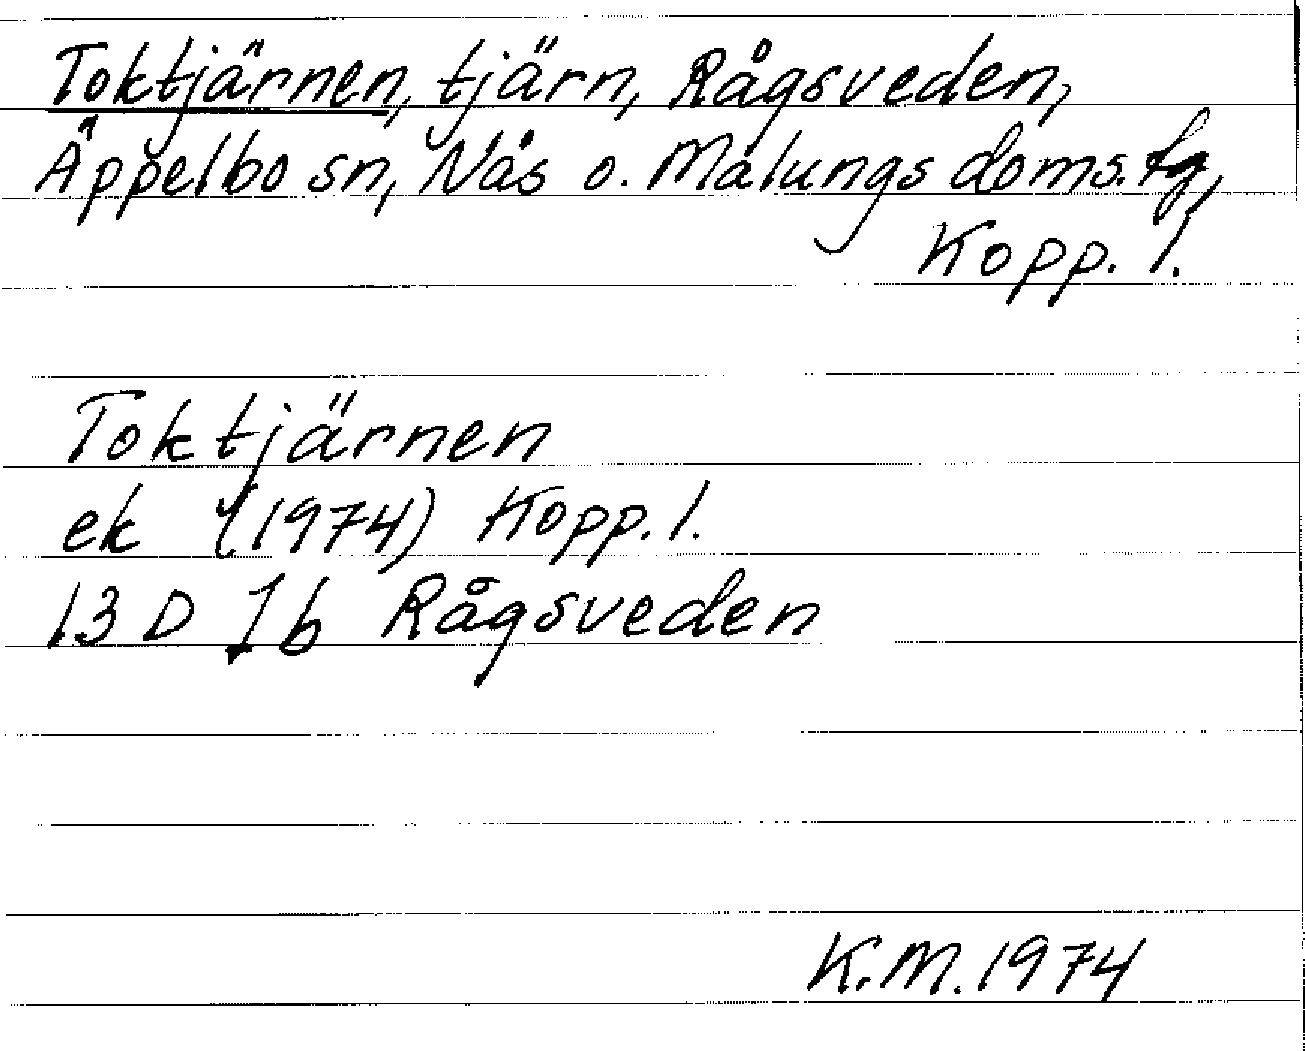 Toktjärnen, tjärn, Rågsveden,
Äppelbo sn, Nås o. Malungs doms. tg,
Kopp. l.
Toktjärnen
ek (1974) Kopp. l.
13 D 1b Rågsveden
K.M. 1974